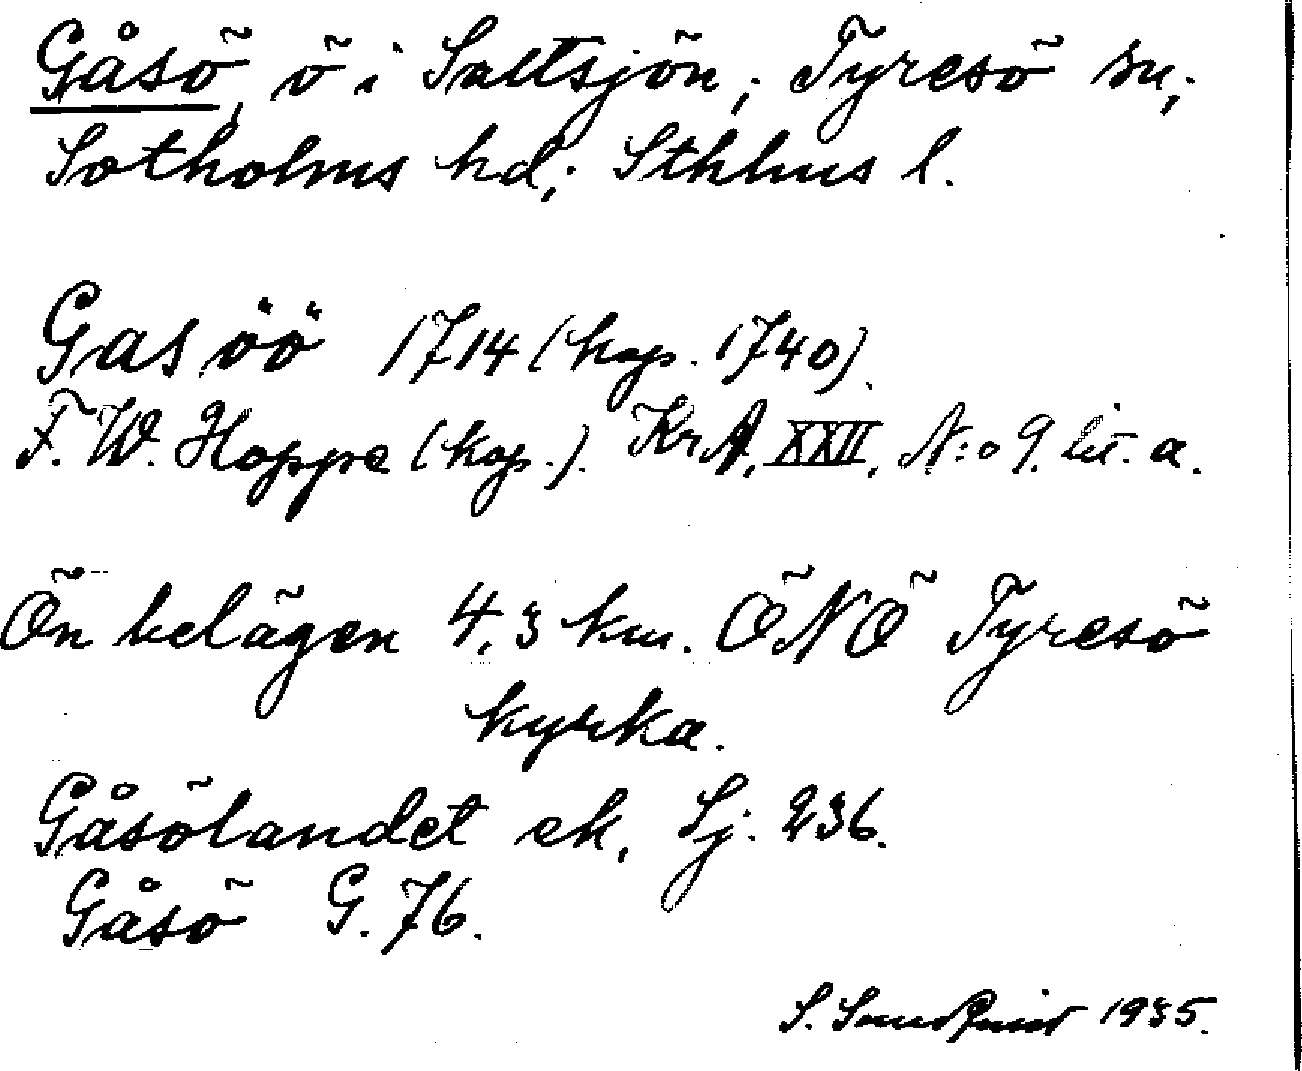 Gåsö, ö i Saltsjön; Tyresö sn;
Sotholms hd; Sthlms l.
Gasöö 1714 (kop. 1740).
F. W. Hoppe (kop.). KrA, XXII, N:o 9. lit. a.
Ön belägen 4,3 km. ÖNÖ Tyresö
kyrka.
Gåsölandet ek, Sj. 236.
Gåsö G. 76.
S. Sundqvist 1935.